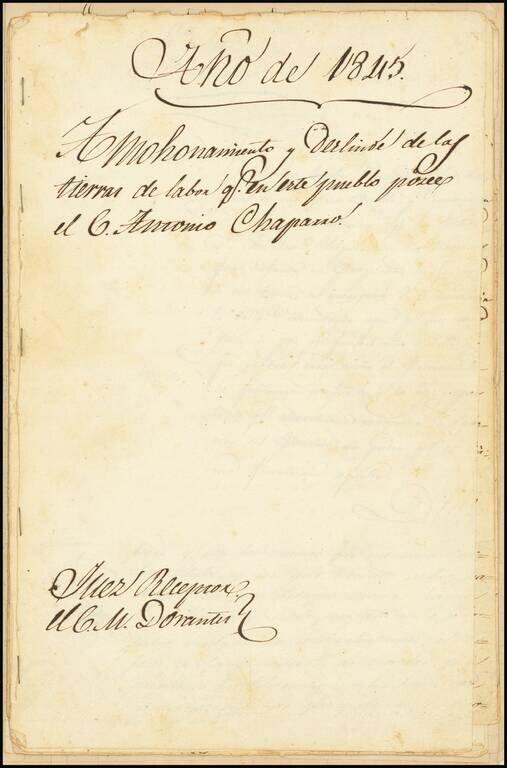 Año de 1845.
Amohonamiento y Deslinde de las
tierras de labor q.e en este pueblo posee
el C. Antonio Chaparro.
Juez Receptor
el C. M. Dorantes